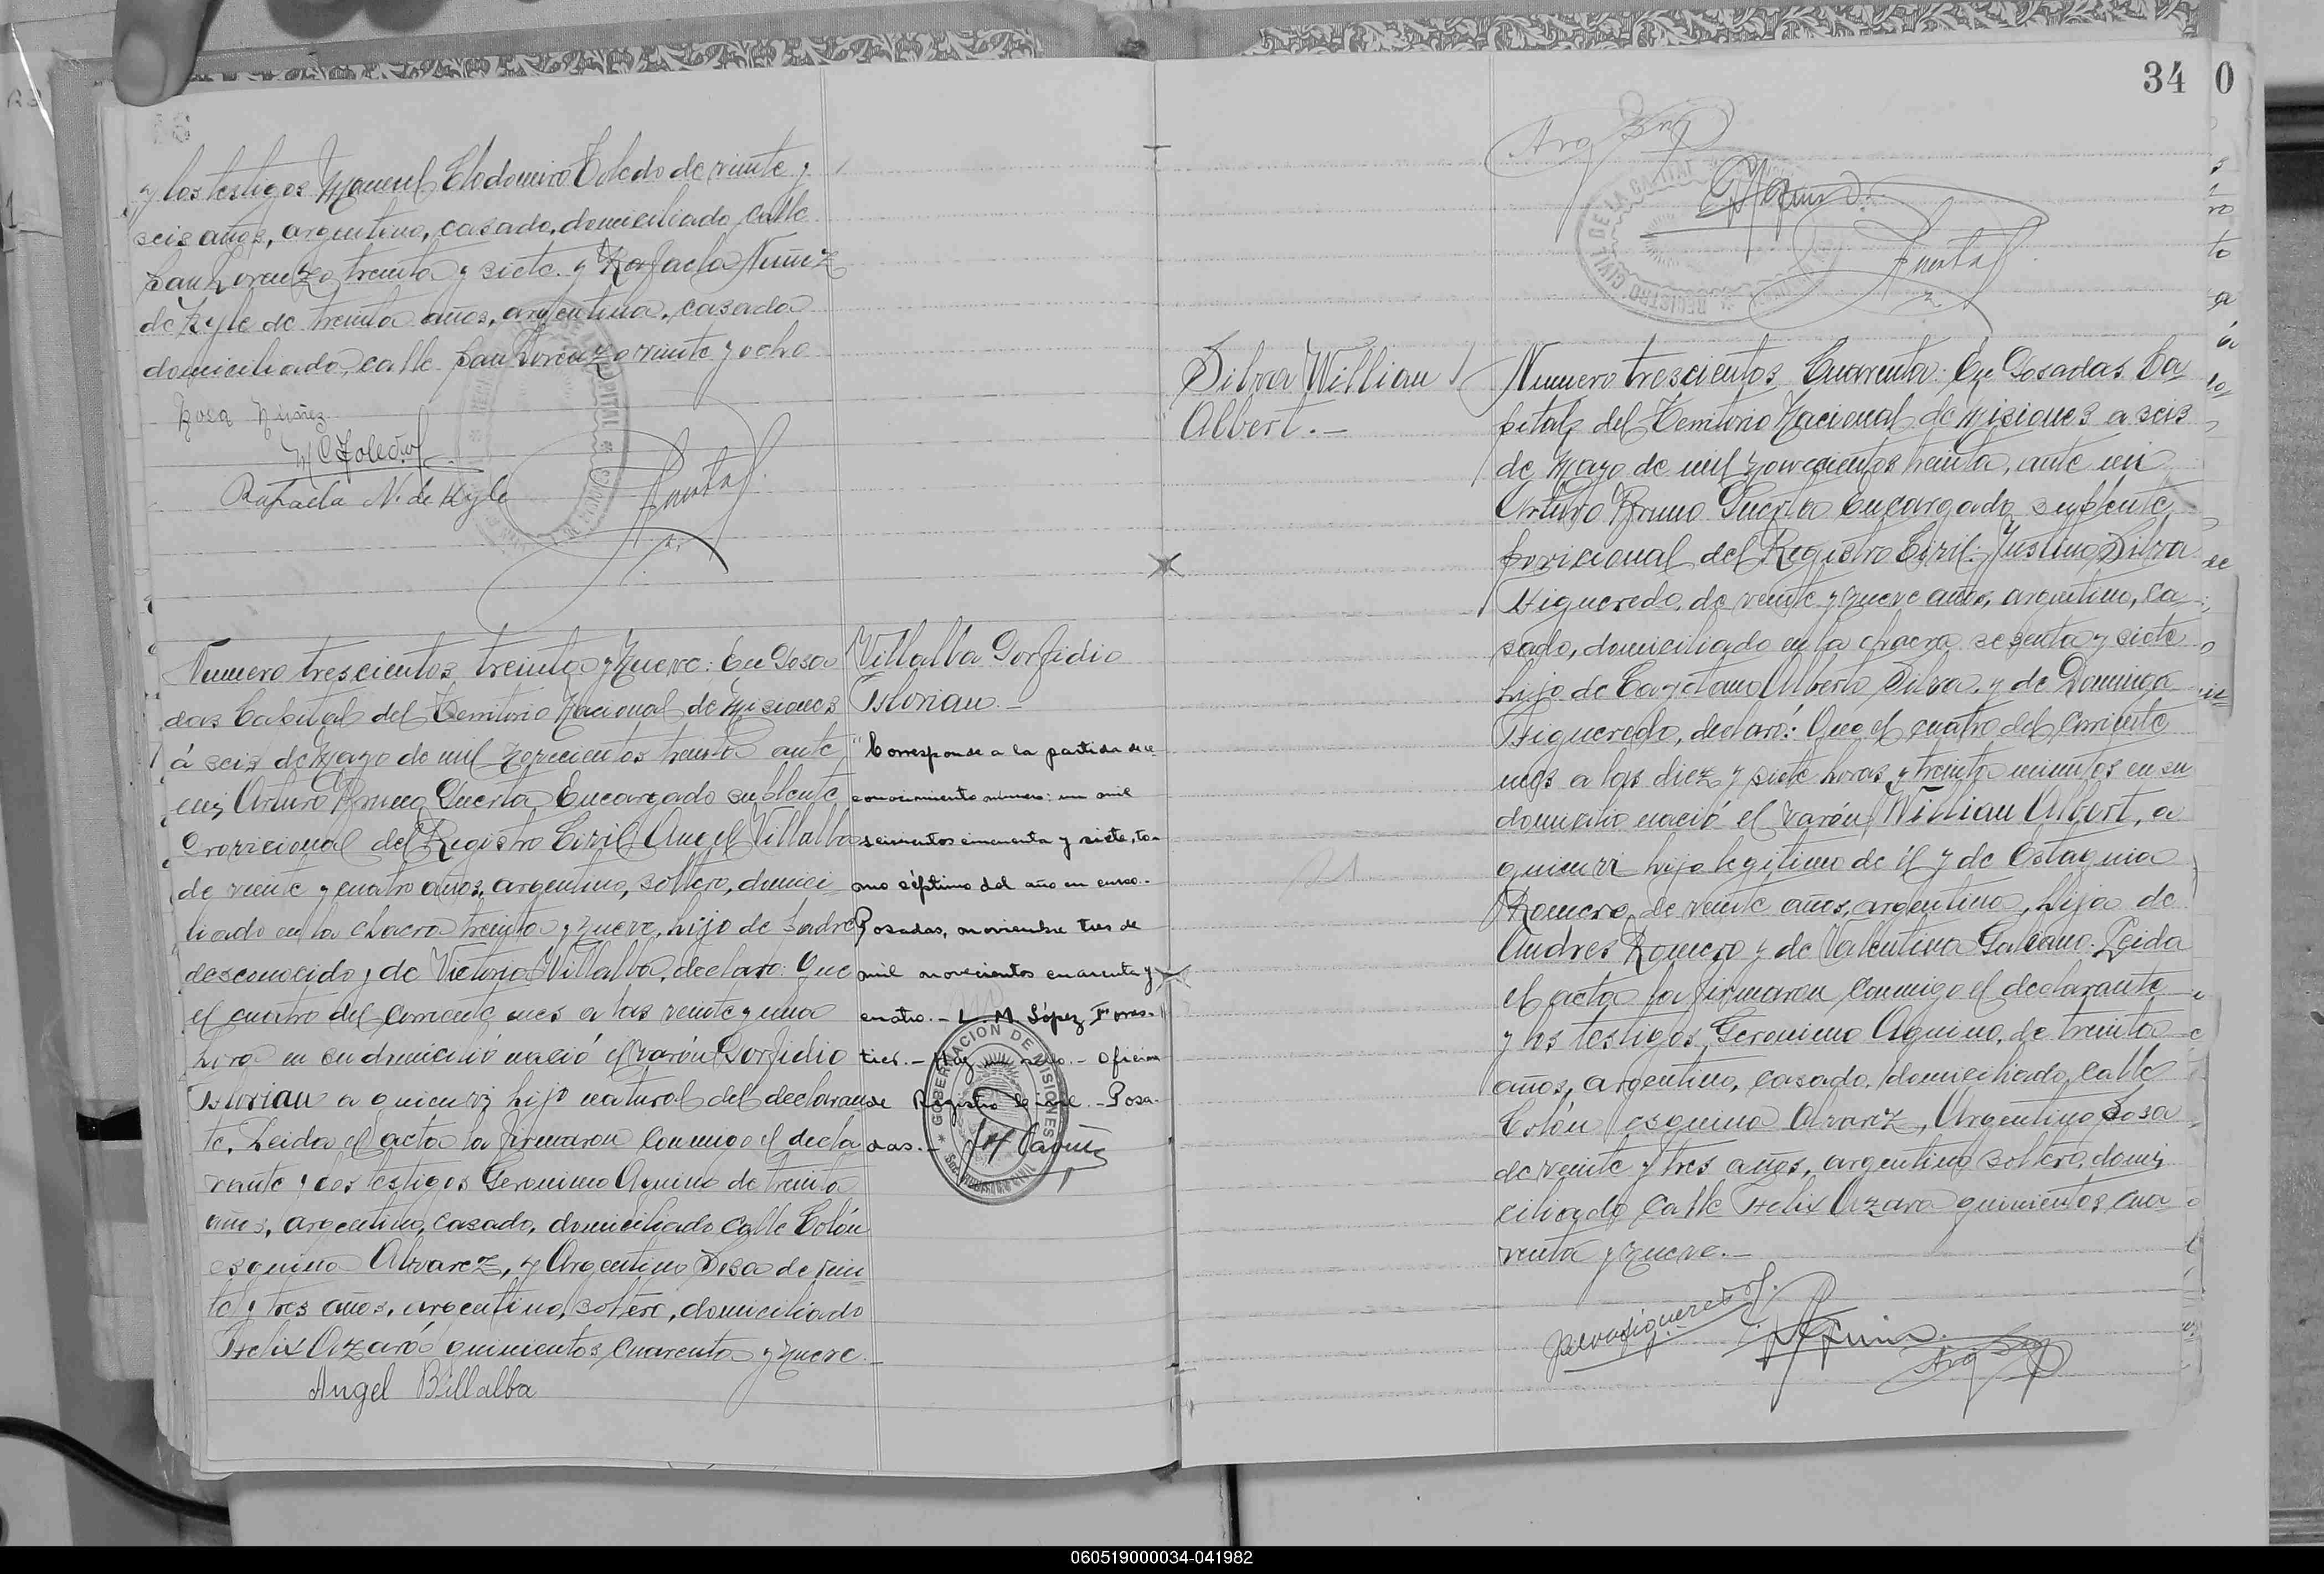 34 0
y los testigos Manuel Clodomiro Toledo de veinte y
seis años, argentino, casado, domiciliado calle
San Lorenzo treinta y siete y Rafaela Nuñez
de Kyle de treinta años, argentina, casada
domiciliada calle San Lorenzo veinte y ocho
Rosa Nuñez
M C Toledo
Rafaela N. de Kyle
Numero trescientos treinta y nueve: En Posa
das Capital del Territorio Nacional de Misiones
á seis de Mayo de mil novecientos treinta ante
mi, Arturo Bruno Puerta Encargado suplente
Provicional del Registro Civil: Angel Villalba
de veinte y cuatro años, argentino, soltero, domici
liado en la chacra treinta y nueve, hijo de padre
desconocido y de Victoria Villalba, declaro: Que
el cuatro del corriente mes a las veinte y una
hora en su domicilio nació el varón Porfidio
Florian a quien vi hijo natural del declaran
te. Leida el acta la firmaron conmigo el decla
rante y los testigos Geronimo Aquino de treinta
años, argentino, casado, domiciliado calle Colón
esquina Alvarez, y Argentino Sosa de vein
te y tres años, argentino, soltero, domiciliado
Felix Azara quinientos cuarenta y nueve.
Angel Billalba
Villalba Porfidio
Florian.-
"Corresponde a la partida de re
conocimiento número: un mil
seiscientos cincuenta y siete, to-
mo séptimo del año en curso.-
Posadas, noviembre tres de
mil novecientos cuarenta y
cuatro.- L. M. López Forres-
tier.- Hay un sello.- Oficina
de Registro Civil.- Posa-
das.-
GOBERNACION DE MISIONES
Silva Willian
Albert.-
Arg Sosa
REGISTRO CIVIL DE LA CAPITAL
Numero trescientos Cuarenta: En Posadas Ca-
pital, del Territorio Nacional de Misiones a seis
de Mayo de mil novecientos treinta, ante mi
Arturo Bruno Puerta Encargado suplente
provicional del Registro Civil: Justino Silva
Figueredo, de veinte y nueve años, argentino, ca-
sado, domiciliado en la chacra sesenta y siete
hijo de Cayetano Alberto Silva, y de Dominga
Figueredo, declaró: Que el cuatro del corriente
mes a las diez y siete horas y treinta minutos en su
domicilio nació el varón, Willian Albert, a
quien vi hijo legitimo de él y de Estagnia
Romero, de veinte años, argentina, hija de
Andres Romero y de Valentina Galeano. Leida
el acta la firmaron conmigo el declarante
y los testigos Geronimo Aquino, de treinta
años, argentino, casado, domiciliado calle
Colón esquina Alvarez, Argentino Sosa
de veinte y tres años, argentino soltero, domi
ciliado calle Felix Azara quinientos cua
renta y nueve.-
060519000034-041982